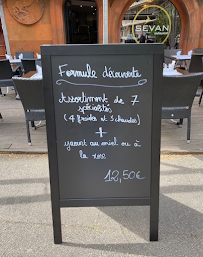 SEVAN
Formule découverte
Assortiment de 7
spécialités
(4 froides et 3 chaudes)
+
yaourt au miel ou à
la rose
12,50€